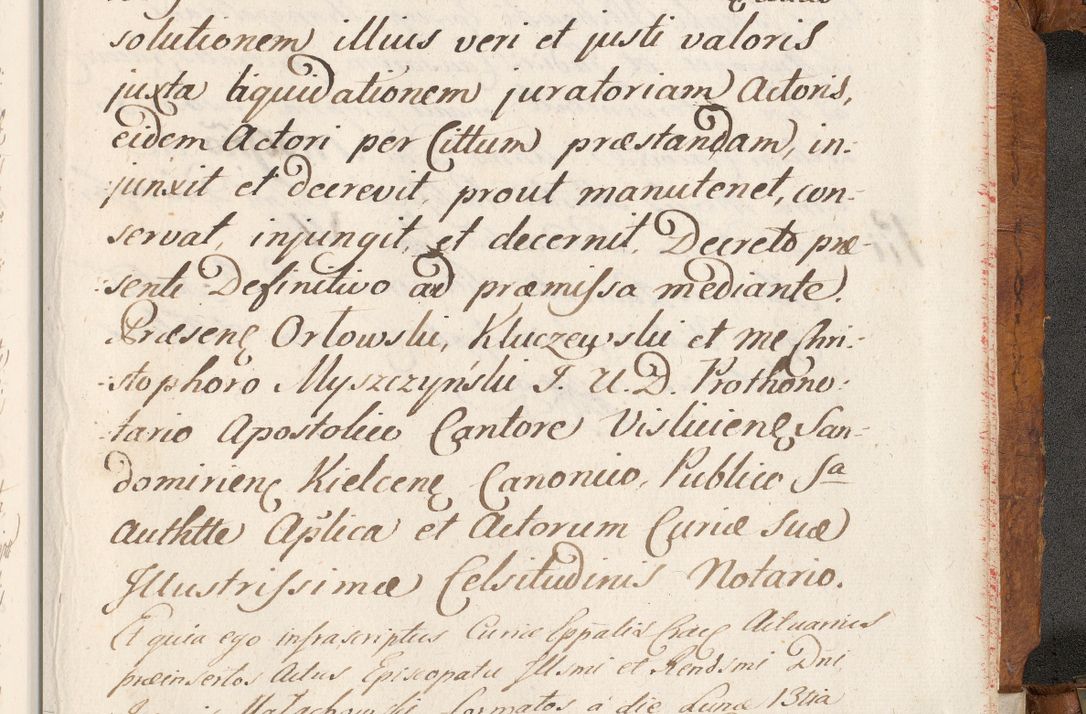 solutionem illius veri et justi valoris
juxta liquidationem juratoriam Actoris,
eidem Actori per Cittum præstandam, in-
junxit et decrevit, prout manutenet, con-
servat, injungit, et decernit, Decreto præ-
senti Definitivo ad præmissa mediante.
Præsenę Orłowski, Kluczewski et me Chri-
stophoro Myszczyński J. U. D. Prothono-
tario Apostolico Cantore Visliciensę San-
domirienę Kielcenę Canonico, Publico Sa
Authtte Aplica et Actorum Curiæ suæ
Illustrissimæ Celsitudinis Notario.
Et quia ego infrascriptus Curiæ Eppalis Cracę Actuarius
præinsertos Actus Episcopatu Illsmi et Rendsmi Dni
Małachowski formatos a die Lunæ 13tia